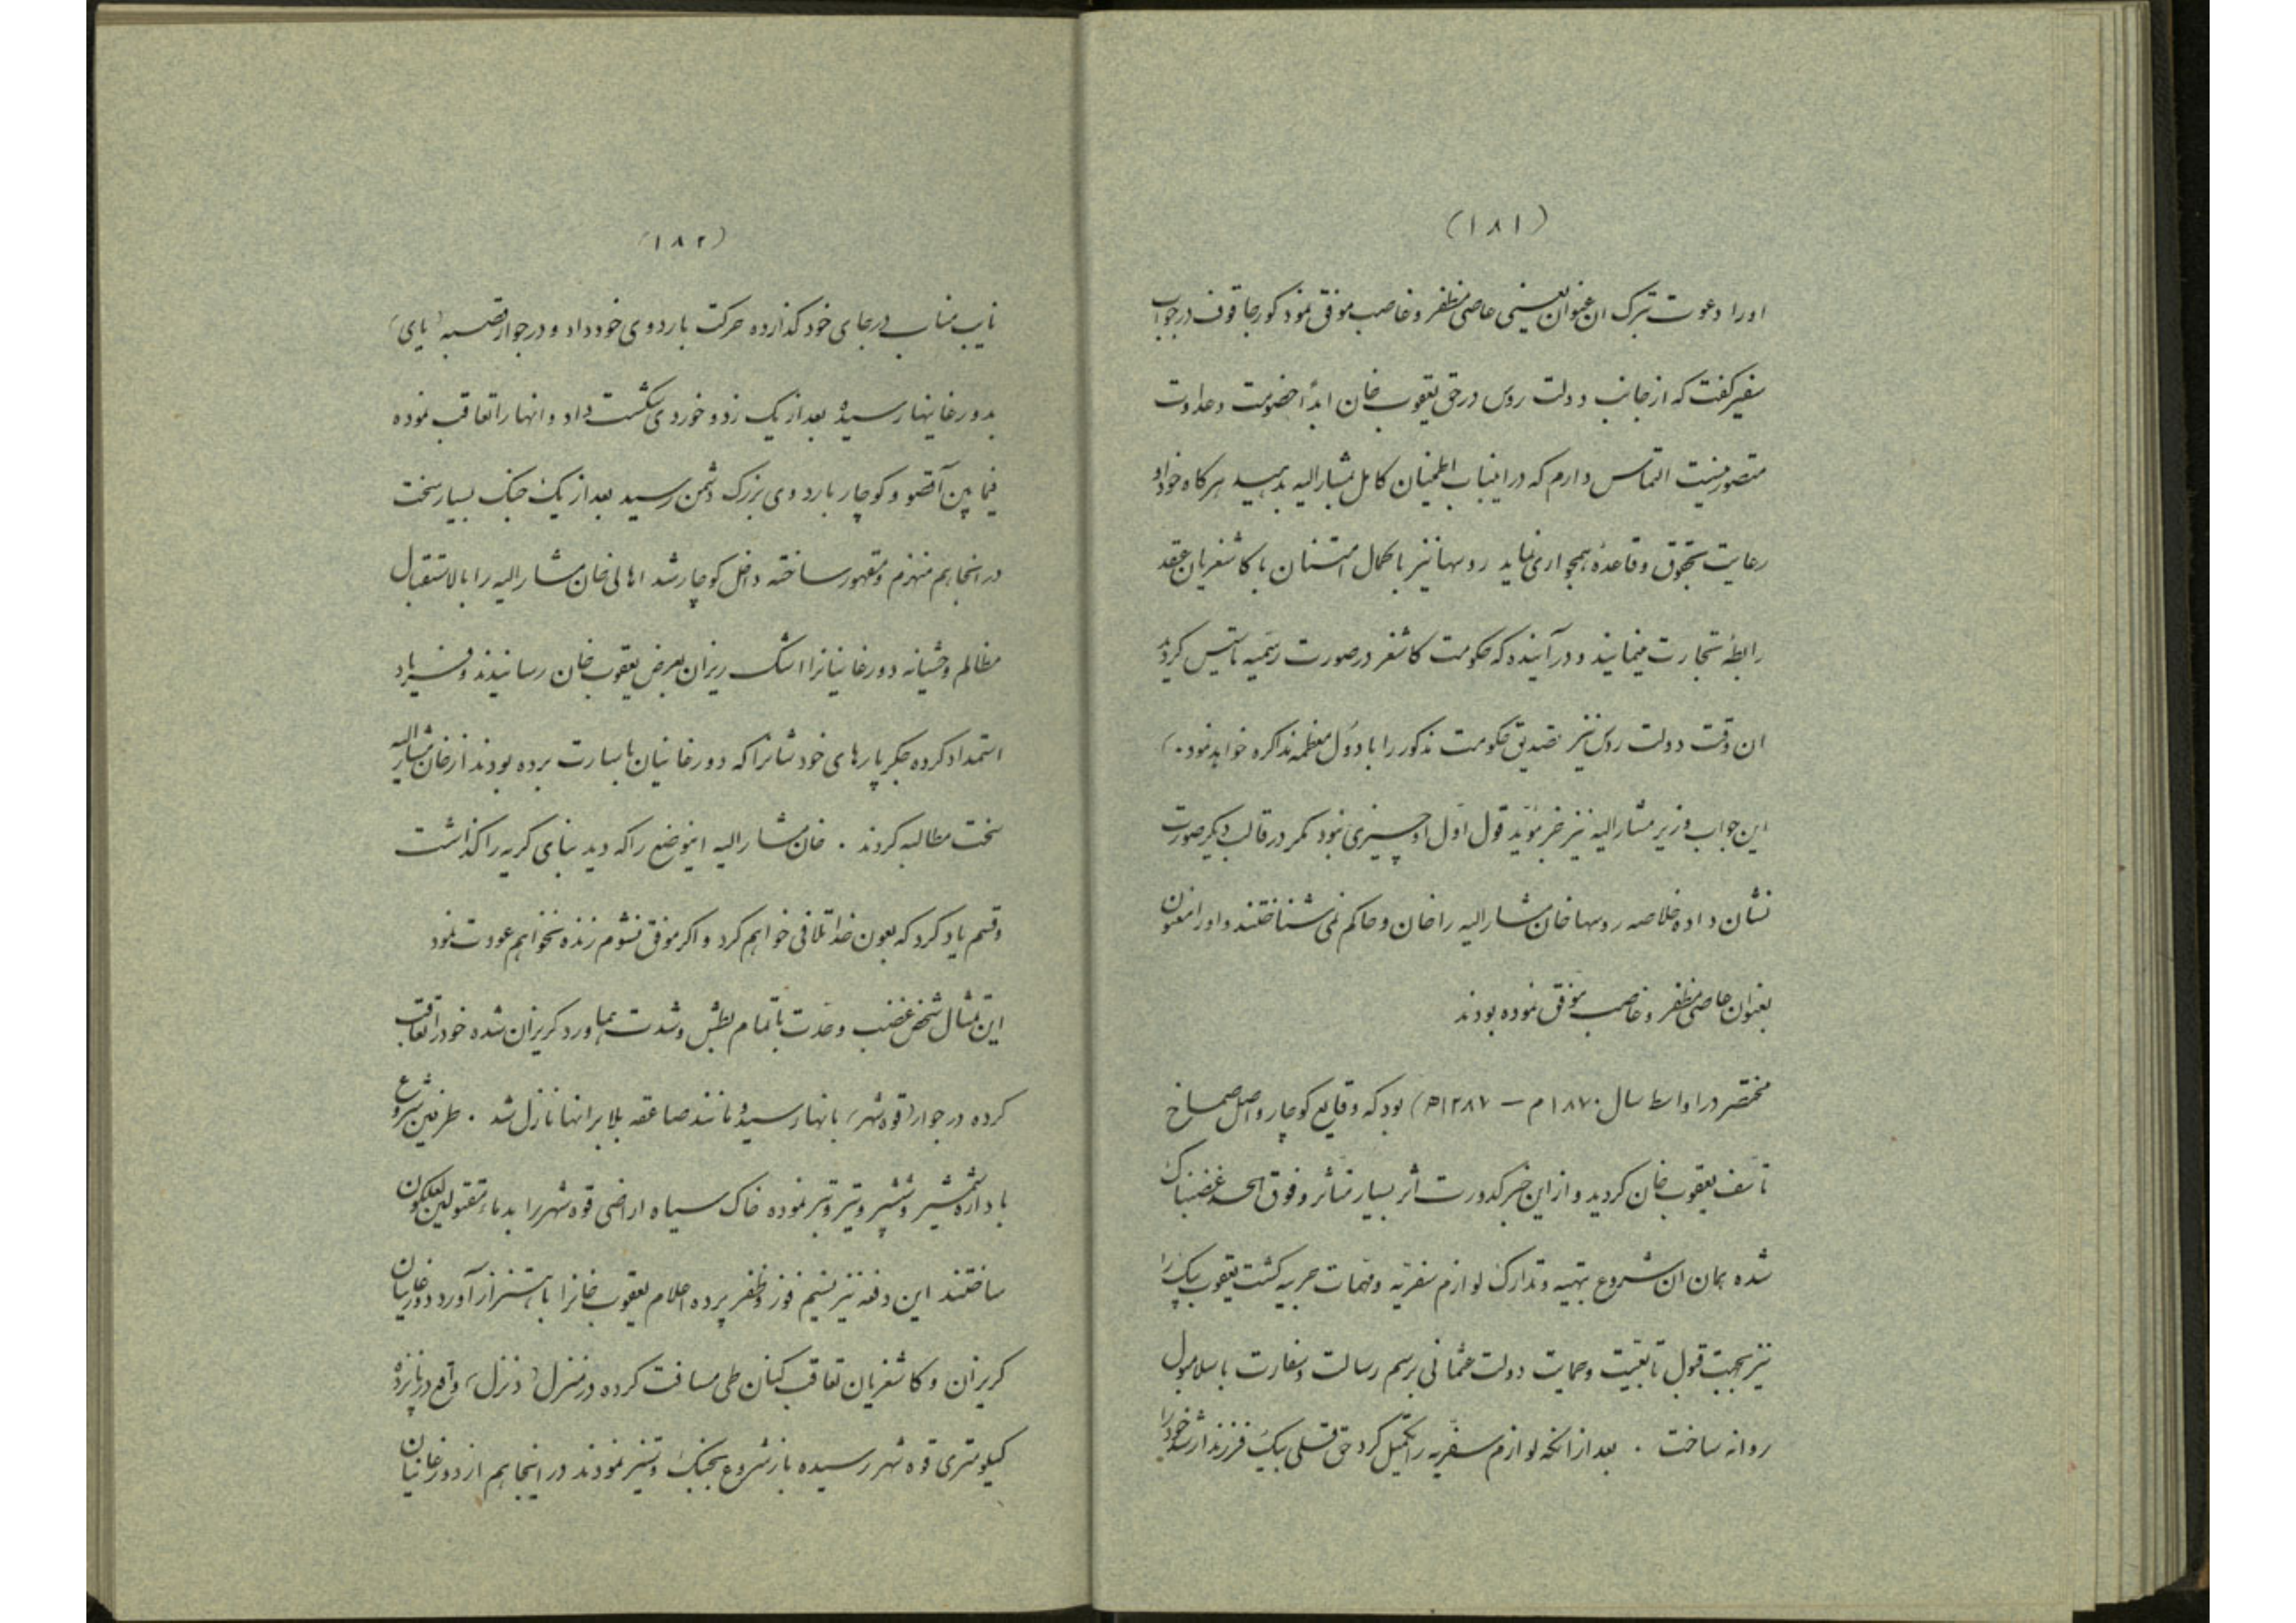 (۱۸۱)
اورا دعوت بترک ان عنوان یعنینی عاصی مظفر و غاصب موفق نمود کورجاقوف درجواب
سفیر کفت که از جانب دولت روس در حق یعقوب خان ابداً خصومت وعداوت
متصور نیست التماس دارم که در اینباب اطمینان کامل بمشارالیه بدهید هرکاه خود او
رعایت بحقوق وقاعدهٔ همجواری نماید روسها نیز با کمال امتنان با کاشغریان عقد
رابطهٔ تجارت مینمایند و در آینده که حکومت کاشغر در صورت رسمیه تأسیس کردید
ان وقت دولت روس نیز تصدیق حکومت مذکور را با دول معظمه مذاکره خواهد نمود.)
این جواب وزیر مشارالیه نیز جز مؤید قول اول او چیزی نبود مکر در قالب دیکر صورت
نشان داده خلاصه روسها خان مشارالیه را خان و حاکم نمی شناختند و اورا معنون
بعنوان عاصی مظفر و غاصب موفق نموده بودند
مختصر در اواسط سال ۱۸۷۰م — ۱۲۸۷ه) بود که وقایع کوچار واصل صماخ
تأسف یعقوب خان کردید و از این خبر کدورت اثر بسیار متأثر و فوق الحد غضبناک
شده همان ان شروع بتهیه و تدارک لوازم سفریه ومهمات حربیه کشت یعقوب بیک را
نیز بجهت قبول تابعیت وحمایت دولت عثمانی برسم رسالت وسفارت باسلامبول
روانه ساخت . بعد از انکه لوازم سفریه را تکمیل کرد حق قلی بیک فرزند ارشد خود را
(۱۸۲)
نایب مناب در جای خود کذارده حرکت باردوی خود داد و در جوار قصبه (بای)
بدورغانیها رسیده بعد از یک زد و خوردی شکست داد و انها را تعاقب نموده
فیما بین آقصو و کوچار باردوی بزرک دشمن رسید بعد از یک جنک بسیار سخت
در انجا هم منهزم و مقهور ساخته داخل کوچار شد اهالی خان مشارالیه را بالاستقبال
مظالم وحشیانه دورغانیانرا اشک ریزان بعرض یعقوب خان رسانیدند و فریاد
استمداد کرده جکر پارهای خودشانرا که دورغانیان باسارت برده بودند از خان مشارالیه
سخت مطالبه کردند . خان مشارالیه اینوضع را که دید بنای کریه را کذاشت
وقسم یاد کرد که بعون خدا تلافی خواهم کرد و اکر موفق نشوم زنده نخواهم عودت نمود
این تمثال شخص غضب وحدت با تمام بطش و شدت بهماورد کریزان شده خود را تعاقب
کرده در جوار (قوه شهر) بانها رسید و مانند صاعقه بلا بر انها نازل شد . طرفین شروع
با دارهٔ شمشیر وششپر وتیر وتبر نموده خاک سیاه اراضی قوه شهر را بدماء مقتولین لعلکون
ساختند این دفعه نیز نسیم فوز وظفر پرده اعلام یعقوب خانرا باهتزاز آورد دورغانیان
کریزان و کاشغریان تعاقب کنان طی مسافت کرده در منزل (دنزل) واقع در پانزده
کیلومتری قوه شهر رسیده باز شروع بجنک وستیز نمودند در اینجا هم از دورغانیان